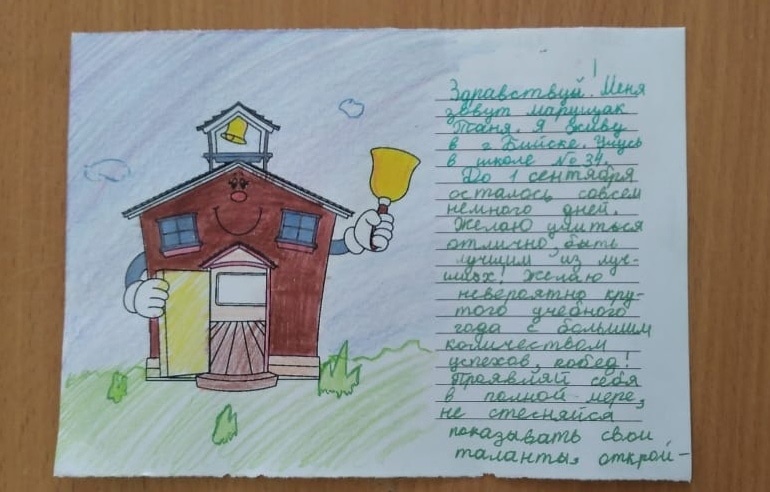 Здравствуй! Меня
зовут Марущак
Таня. Я живу
в г. Бийске. Учусь
в школе № 34.
До 1 сентября
осталось совсем
немного дней.
Желаю учиться
отлично, быть
лучшим из луч-
ших! Желаю
невероятно кру-
того учебного
года с большим
количеством
успехов, побед!
Проявляй себя
в полной мере,
не стесняйся
показывать свои
таланты, открой-